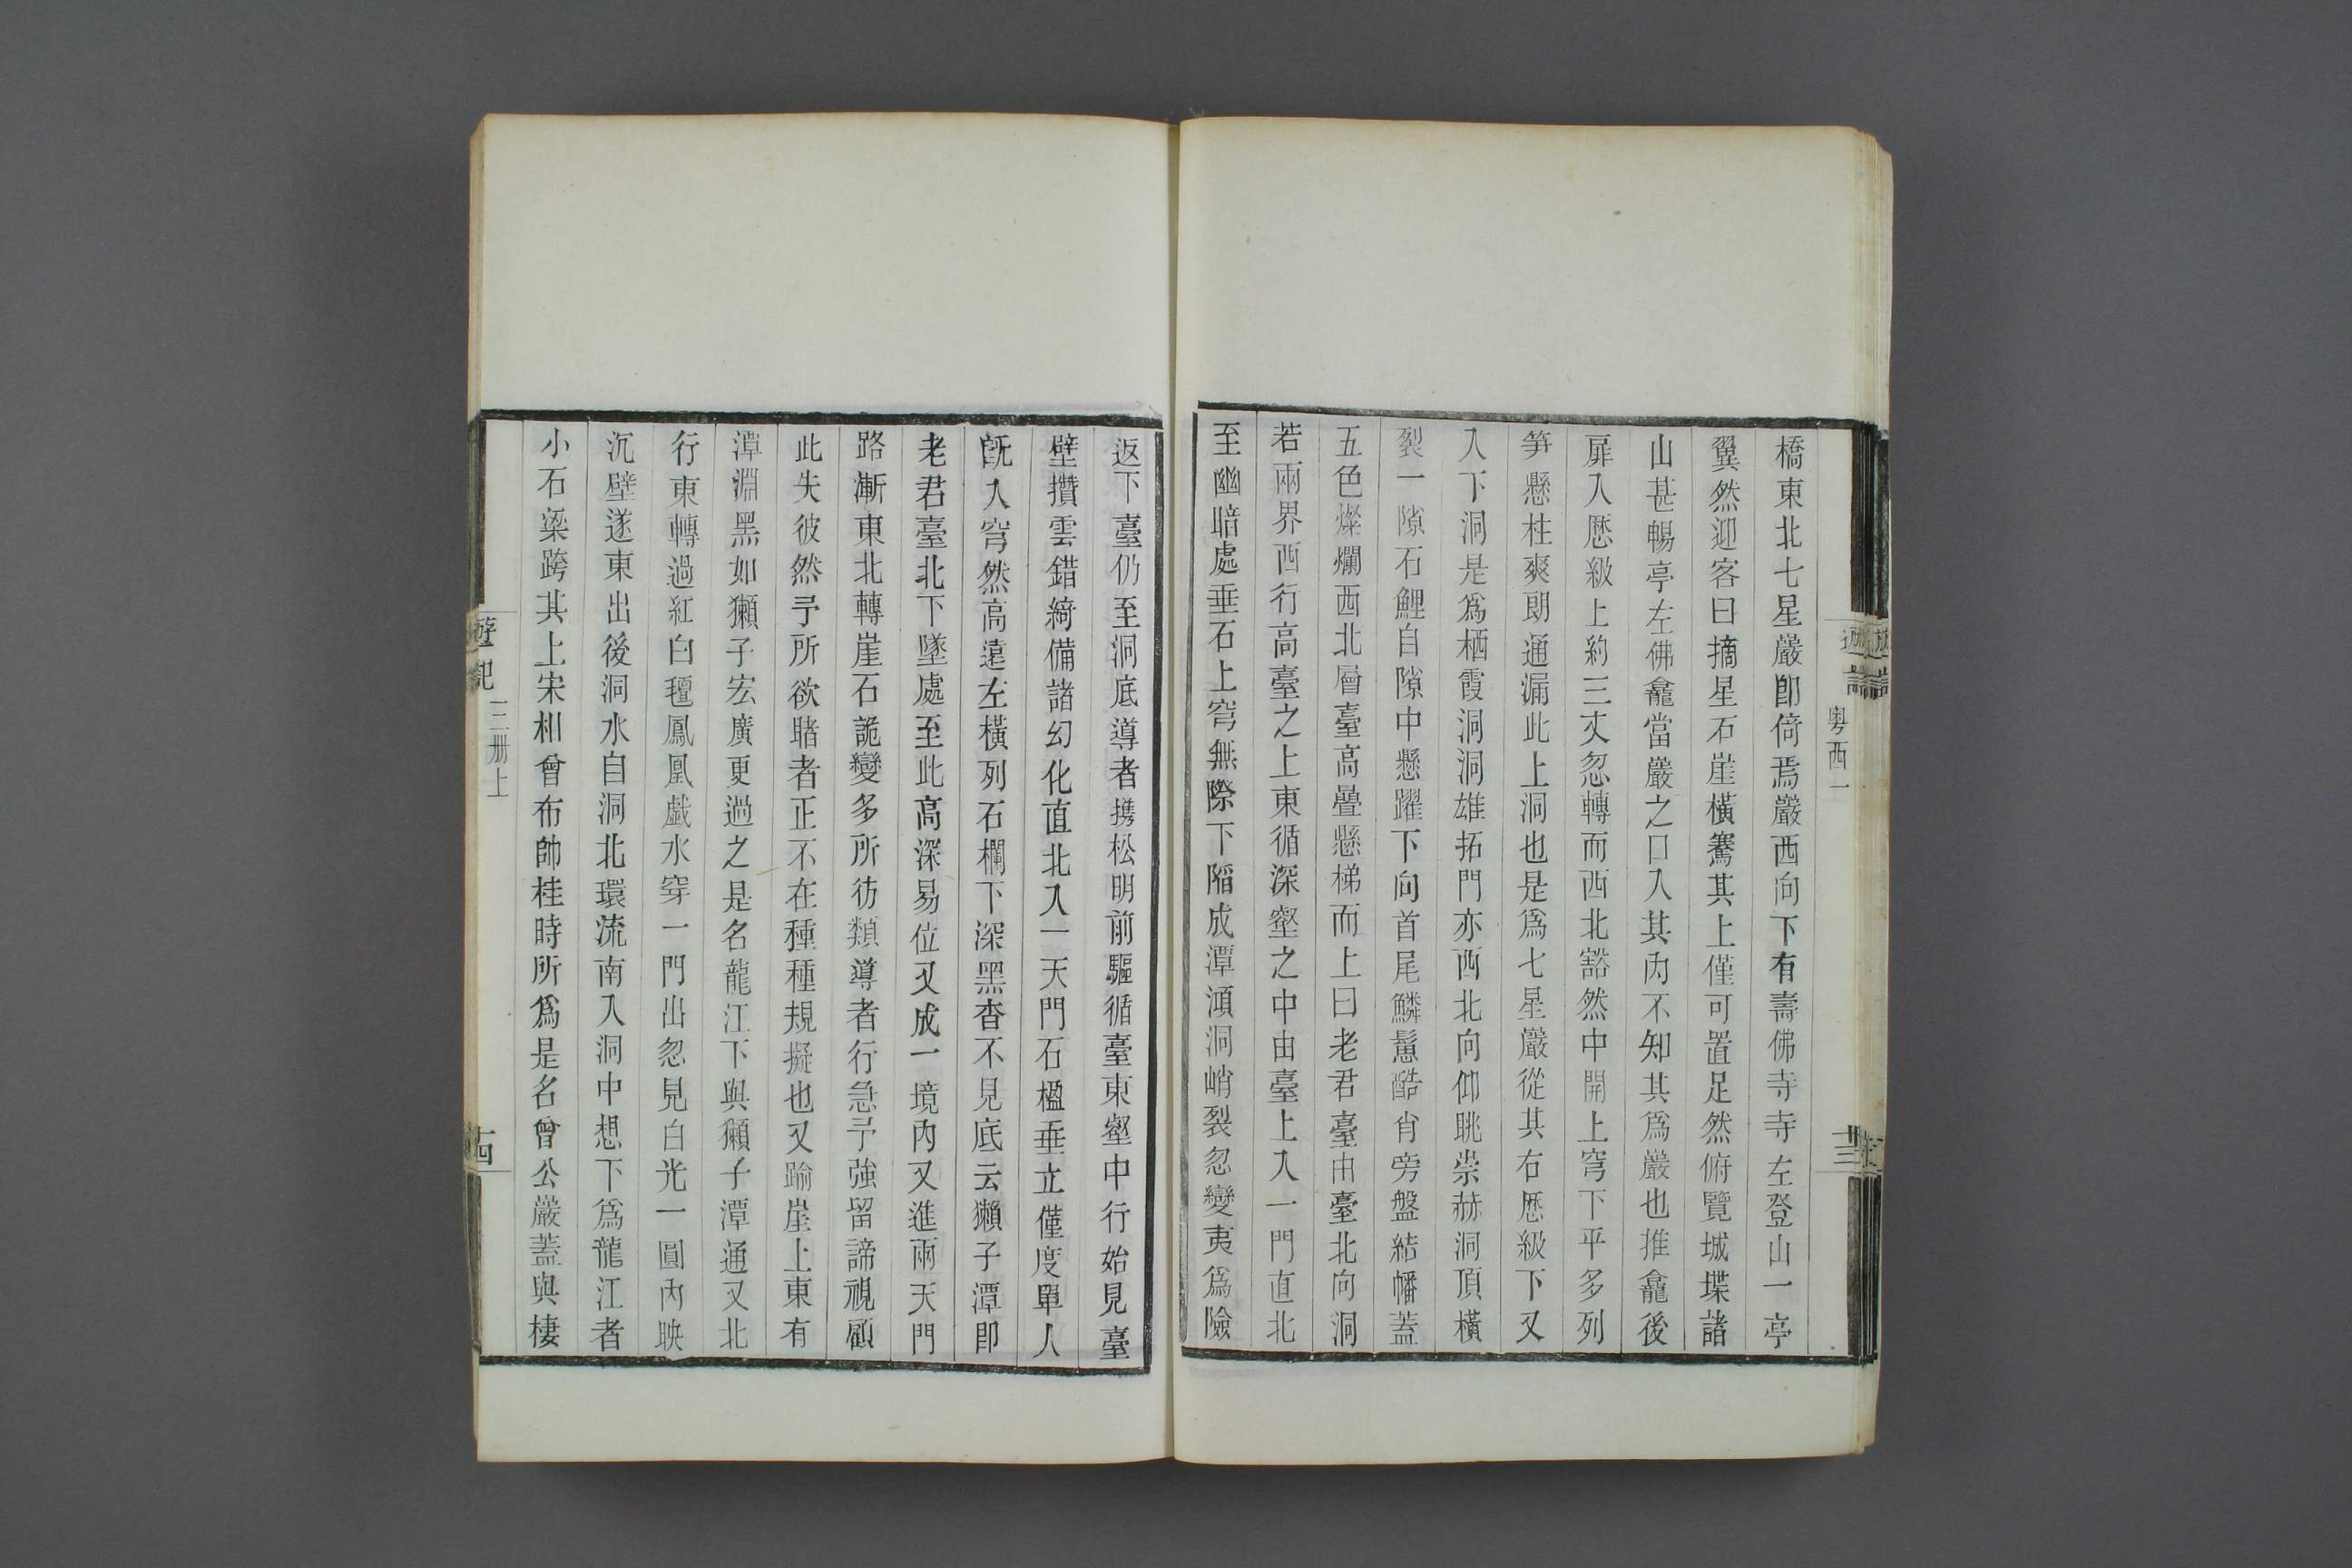 粤西一
橋東北七星巖卽倚焉巖西向下有壽佛寺寺左登山一亭
翼然迎客曰摘星石崖橫騫其上僅可置足然俯覽城堞諸
山甚暢亭左佛龕當巖之口入其內不知其爲巖也推龕後
扉入歷級上約三丈忽轉而西北豁然中開上穹下平多列
笋懸柱爽朗通漏此上洞也是爲七星巖從其右歷級下又
入下洞是爲栖霞洞洞雄拓門亦西北向仰眺崇赫洞頂橫
裂一隙石鯉自隙中懸躍下向首尾鱗鬛酷肖旁盤結幡蓋
五色燦爛西北層臺高疊懸梯而上曰老君臺由臺北向洞
若兩界西行高臺之上東循深壑之中由臺上入一門直北
至幽暗處垂石上穹無際下陷成潭澒洞峭裂忽變夷爲險
返下臺仍至洞底導者携松明前驅循臺東壑中行始見臺
壁攢雲錯綺備諸幻化直北入一天門石楹垂立僅度單人
旣入穹然高遠左橫列石欄下深黑杳不見底云獺子潭卽
老君臺北下墜處至此高深易位又成一境內又進兩天門
路漸東北轉崖石詭變多所彷類導者行急予強留諦視顧
此失彼然予所欲睹者正不在種種規擬也又踰崖上東有
潭淵黑如獺子宏廣更過之是名龍江下與獺子潭通又北
行東轉過紅白氊鳳凰戲水穿一門出忽見白光一圓內映
沉壁遂東出後洞水自洞北環流南入洞中想下爲龍江者
小石梁跨其上宋相曾布帥桂時所爲是名曾公巖蓋與棲
遊記
三册上
十四